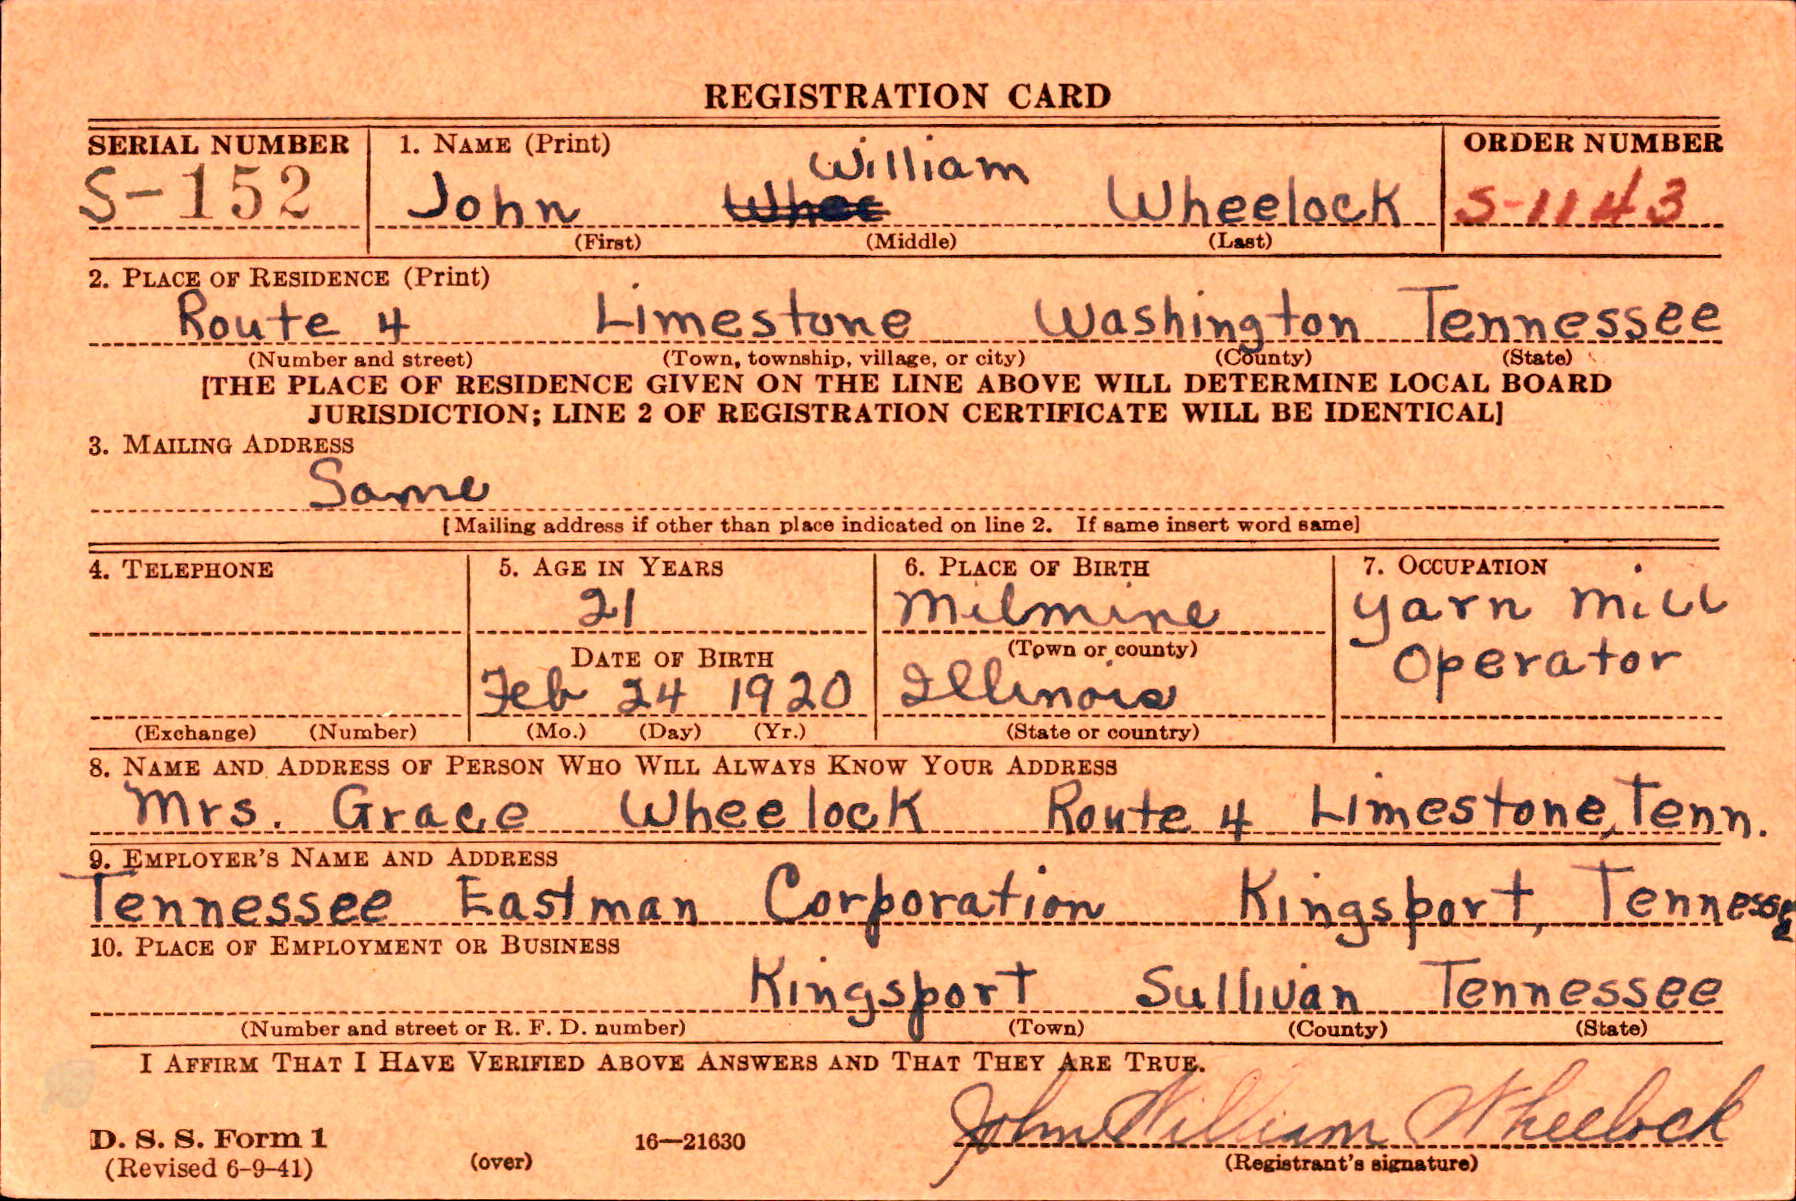 REGISTRATION CARD
SERIAL NUMBER 1. NAME (Print) ORDER NUMBER
William
S-152 John Whee Wheelock S-1143
(First) (Middle) (Last)
2. PLACE OF RESIDENCE (Print)
Route 4 Limestone Washington Tennessee
(Number and street) (Town, township, village, or city) (County) (State)
[THE PLACE OF RESIDENCE GIVEN ON THE LINE ABOVE WILL DETERMINE LOCAL BOARD
JURISDICTION; LINE 2 OF REGISTRATION CERTIFICATE WILL BE IDENTICAL]
3. MAILING ADDRESS
Same
[Mailing address if other than place indicated on line 2. If same insert word same]
4. TELEPHONE 5. AGE IN YEARS 6. PLACE OF BIRTH 7. OCCUPATION
21 Milmine Yarn Mill
(Town or county)
DATE OF BIRTH Operator
Feb 24 1920 Illinois
(Exchange) (Number) (Mo.) (Day) (Yr.) (State or country)
8. NAME AND ADDRESS OF PERSON WHO WILL ALWAYS KNOW YOUR ADDRESS
Mrs. Grace Wheelock Route 4 Limestone, Tenn.
9. EMPLOYER'S NAME AND ADDRESS
Tennessee Eastman Corporation Kingsport, Tennessee
10. PLACE OF EMPLOYMENT OR BUSINESS
Kingsport Sullivan Tennessee
(Number and street or R. F. D. number) (Town) (County) (State)
I AFFIRM THAT I HAVE VERIFIED ABOVE ANSWERS AND THAT THEY ARE TRUE.
John William Wheelock
D. S. S. Form 1 16—21630
(Revised 6-9-41) (over) (Registrant's signature)